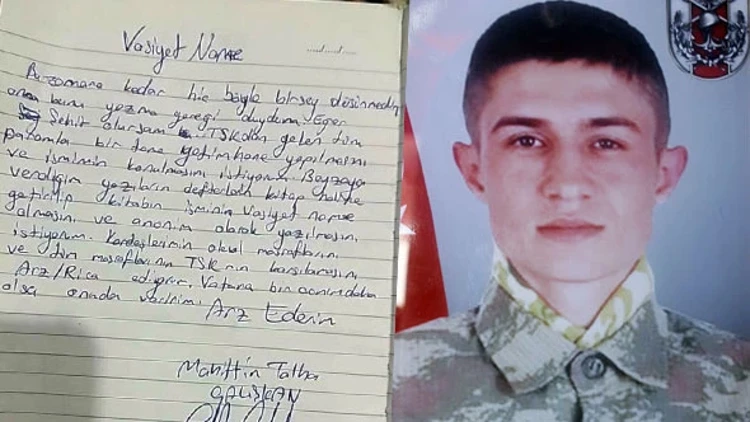 Vasiyet Name
..../..../....
Bu zamana kadar hiç böyle birşey düşünmedim
ama bunu yazma gereği duydum. Eğer
Şehit olursam TSKdan gelen tüm
paramla bir tane yetimhane yapılmasını
ve ismimin konulmasını istiyorum. Beyzaya
verdiğim yazıların defterlerin kitap haline
getirilip kitabın isminin Vasiyet name
olmasını ve anonim olarak yazılmasını
istiyorum. Kardeşlerimin okul masraflarını
ve tüm masraflarının TSK nın karşılamasını
Arz/Rica ediyorum. Vatana bin canım daha
olsa onuda veririm. Arz Ederim
Mahittin Talha
ÇALIŞKAN